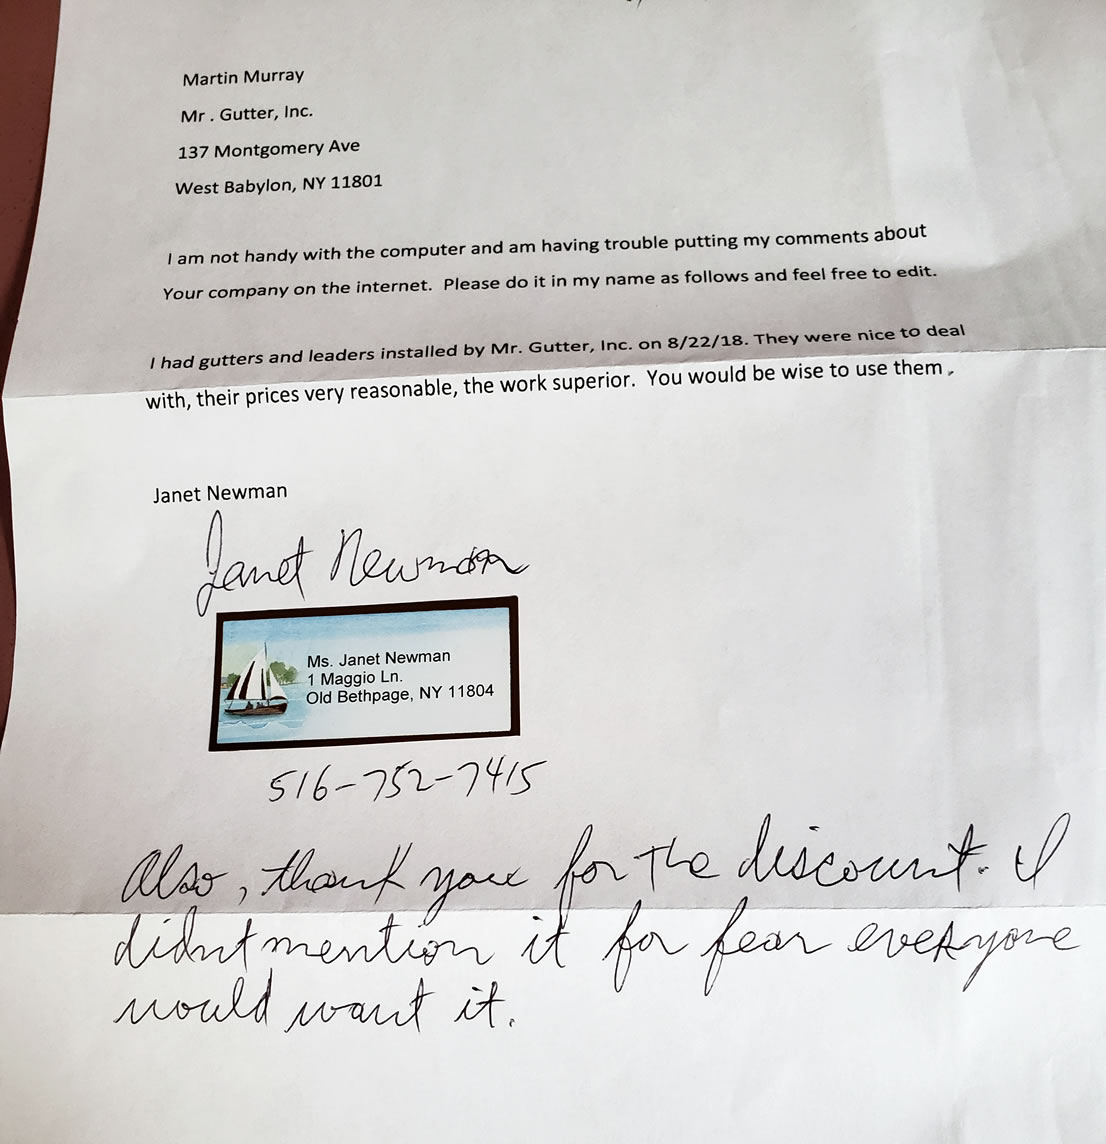 Martin Murray
Mr . Gutter, Inc.
137 Montgomery Ave
West Babylon, NY 11801
I am not handy with the computer and am having trouble putting my comments about
Your company on the internet. Please do it in my name as follows and feel free to edit.
I had gutters and leaders installed by Mr. Gutter, Inc. on 8/22/18. They were nice to deal
with, their prices very reasonable, the work superior. You would be wise to use them.
Janet Newman
Janet Newman
Ms. Janet Newman
1 Maggio Ln.
Old Bethpage, NY 11804
516-752-7415
Also, thank you for the discount. I
didnt mention it for fear everyone
would want it.